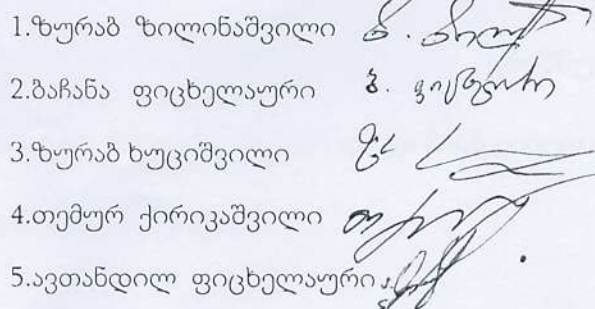 1.ზურაბ ზილინაშვილი
2.ბაჩანა ფიცხელაური
3.ზურაბ ხუციშვილი
4.თემურ ქირიკაშვილი
5.ავთანდილ ფიცხელაური